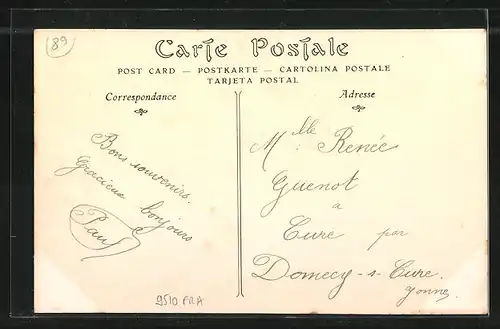 89
Carte Postale
POST CARD — POSTKARTE — CARTOLINA POSTALE
TARJETA POSTAL
Correspondance
Adresse
Bons souvenirs.
Gracieux bonjours
Paul
Mlle Renée
Guenot
à
Cure par
Domecy-s-Cure.
Yonne.
9510 FRA